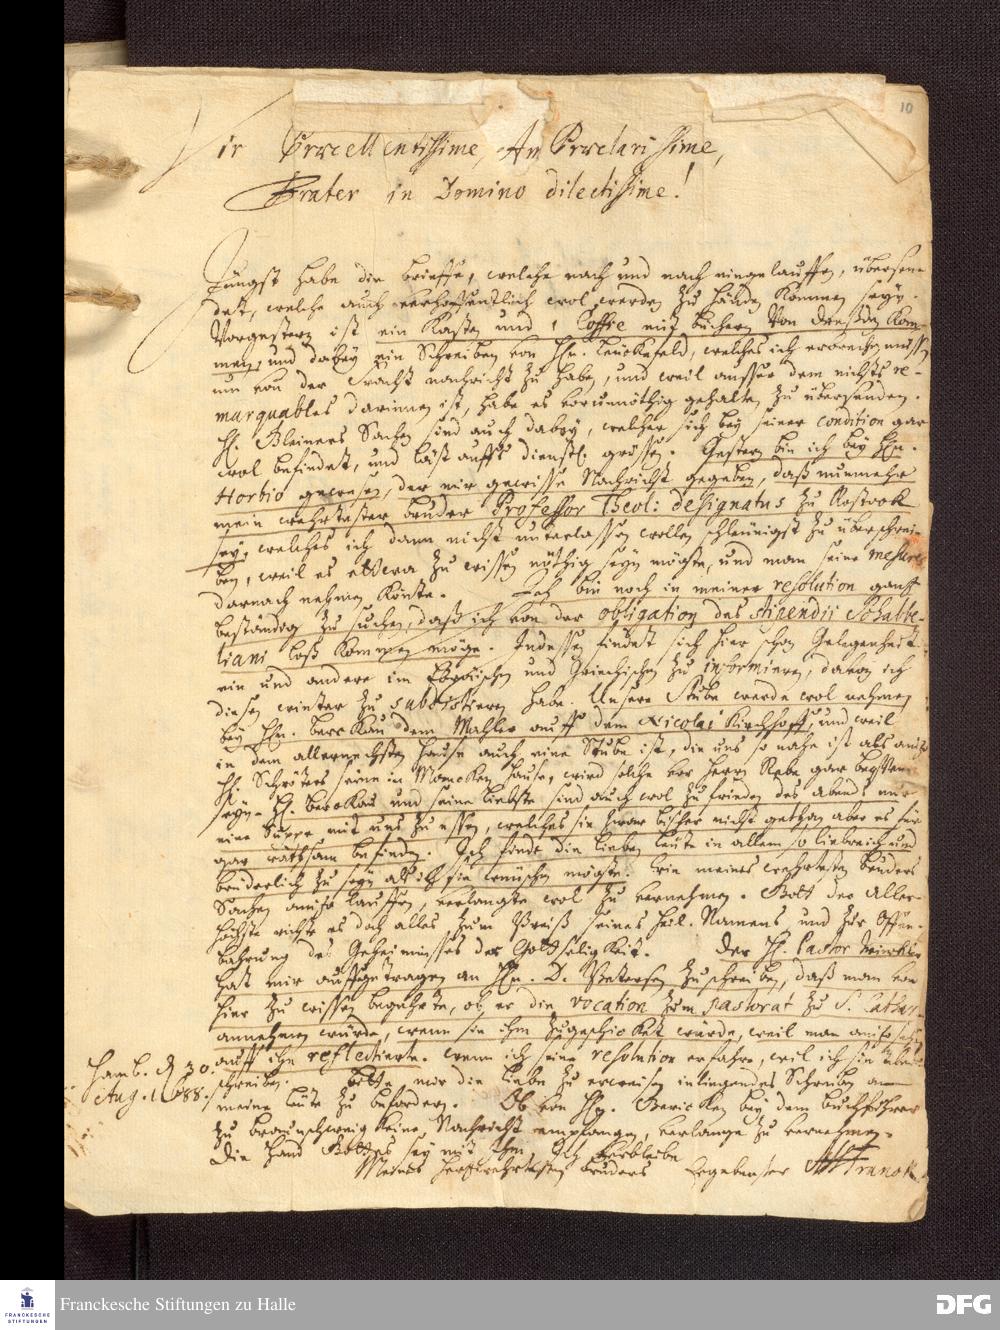 10
Vir Excellentissime, Am. Præclarissime,
Frater in Domino dilectissime!
Jüngst habe die brieffe, welche nach und nach eingelauffen, übersen-
det, welche auch verhoffentlich wol werden zu händen kommen seyn.
Vorgestern ist ein Kasten und 1 Coffre mit büchern von Dreßden kom-
men, und dabey ein Schreiben von Hn. Leuckefeld, welches ich erbrechen müssen
um von der Fracht nachricht zu haben, und weil ausser dem nichts re-
marquables darinnen ist, habe es vor unnöthig gehalten zu übersenden.
H. Bleiners Sachen sind auch dabey, welcher sich bey seiner condition gar
wol befindet, und läst auffs dienstl. grüssen. Gestern bin ich bey Hn.
Horbio gewesen, der mir gewisse Nachricht gegeben, daß nunmehr
mein wehrtester bruder Professor Theol: designatus zu Rostock
sey, welches ich dann nicht unterlassen wollen schleunigst zu überschrei-
ben, weil es etwa zu wissen nöthig seyn mögte, und man seine mesures
darnach nehmen könte. Ich bin noch in meiner resolution gantz
beständig zu suchen, daß ich von der obligation des stipendii Schabbe-
liani loß kommen möge. Indessen findet sich hier schon Gelegenheit
ein und andere im Ebräischen und Griechischen zu informieren, davon ich
diesen winter zu subsistieren habe. Unsere Stube werde wol nehmen
bey Hn. Berckau dem Mahler auff dem Nicolai Kirchhoff, und weil
in dem allernechsten Hause auch eine Stube ist, die uns so nahe ist als
H. Schröters seine in Momcken Hause, wird solche vor Herrn Rebe gar
seyn. H. Berckau und seine liebste sind auch wol zu frieden des abends nur
eine Suppe mit uns zu essen, welches sie zwar bißher nicht gethan aber es für
gar rathsam befinden. Ich finde die lieben leute in allem so liebreich und
brüderlich zu seyn als ich sie wünschen mögte. Wie meines wehrtesten bruders
Sachen anitzo lauffen, verlangte wol zu vernehmen. Gott der aller-
höchste richte es doch alles zum Preiß seines heil. Namens und zur Offen-
bahrung des Geheimnisses der Gottseligkeit. Der H. Pastor Winckler
hat mir auffgetragen an Hn. D. Petersen zu schreiben, daß man von
hier zu wissen begehrte, ob er die vocation zum pastorat zu S. Cathar.
annehmen würde, wenn sie ihm zugeschicket würde, weil man anitzo sehr
auff ihn reflectierte. Wenn ich seine resolution erfahre, wil ich sie über-
schreiben. Bitte mir die Liebe zu erweisen inliegendes Schreiben an
meine leute zu befordern. Ob von Hn. Bericken bey dem buchführer
zu braunschweig keine Nachricht empfangen, verlange zu vernehmen.
Die Hand Gottes sey mit Ihm. Ich verbleibe
Meines hertzwehrtesten bruders Ergebenster AHFrancke.
Hamb. d. 30.
Aug. 1688.
Franckesche Stiftungen zu Halle
FRANCKESCHE
STIFTUNGEN
DFG